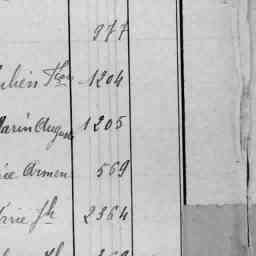 977
ulien Thre 1204
Marin Auguste 1205
ie Armen 569
rie Jh 2364